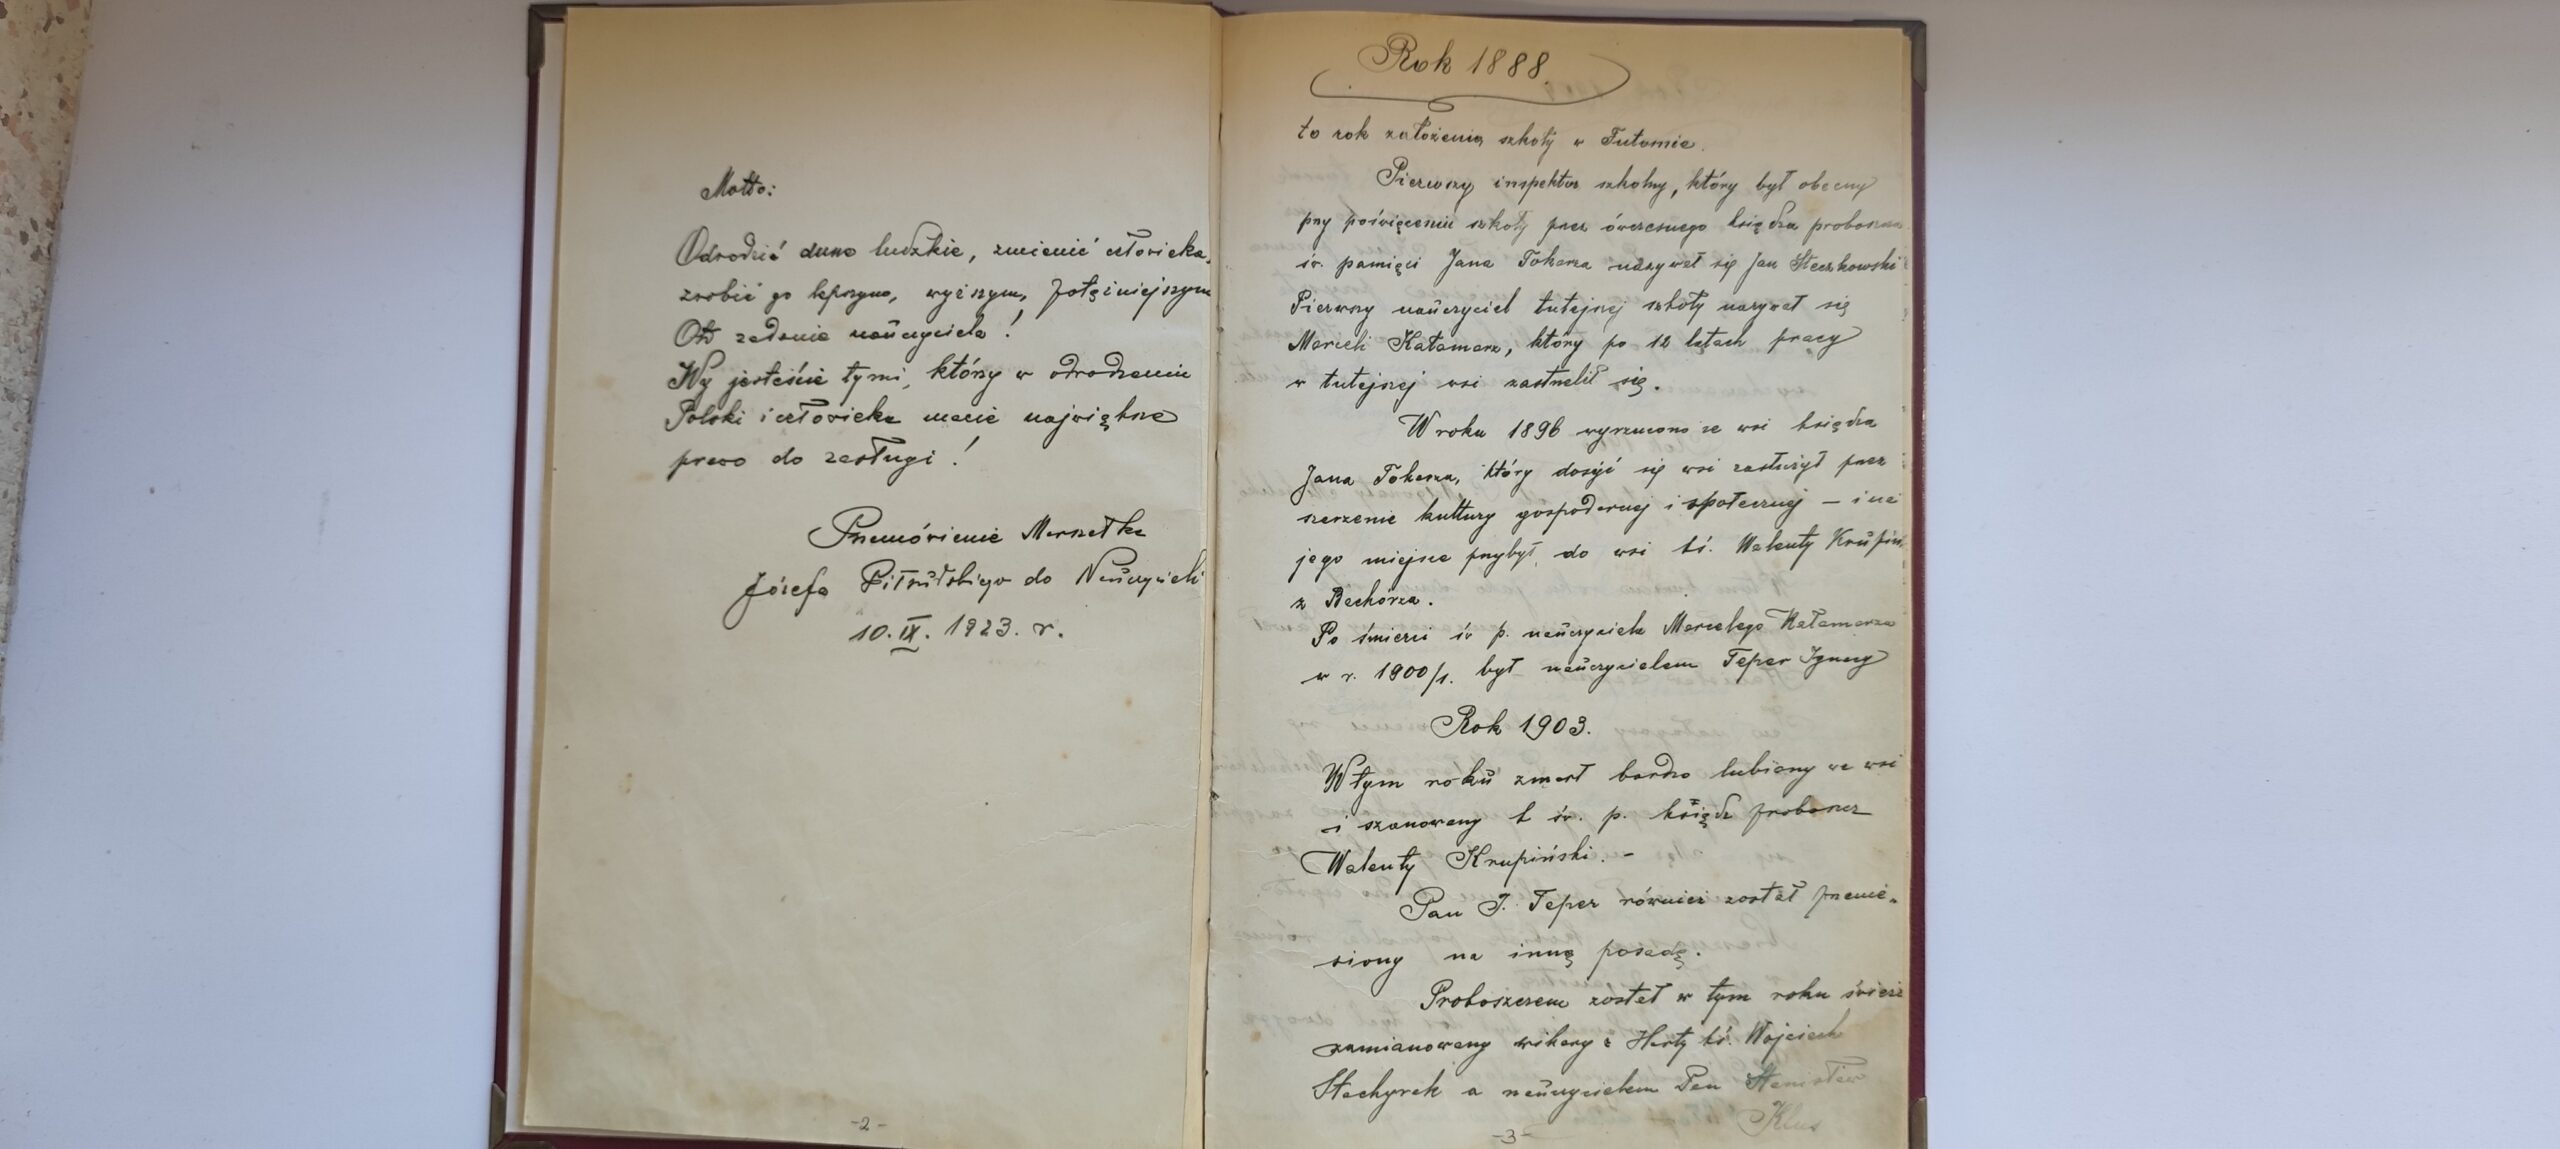 Motto:
Odrodzić dusze ludzkie, zmienić człowieka,
zrobić go lepszym, wyższym, potężniejszym
Oto zadanie nauczyciela!
Wy jesteście tymi, którzy w odrodzeniu
Polski i człowieka macie największe
prawo do zasługi!
Przemówienie Marszałka
Józefa Piłsudskiego do Nauczycieli
10. IX. 1923. r.
-2-
Rok 1888
to rok założenia szkoły w Futomie.
Pierwszy inspektor szkolny, który był obecny
przy poświęceniu szkoły przez ówczesnego księdza proboszcza
św. pamięci Jana Tokarza nazywał się Jan Steczkowski
Pierwszy nauczyciel tutejszej szkoły nazywał się
Marceli Kałamarz, który po 12 latach pracy
w tutejszej wsi zastrzelił się.
W roku 1896 wyrzucono ze wsi księdza
Jana Tokarza, który dosyć się wsi zasłużył przez
szerzenie kultury gospodarnej i społecznej – i na
jego miejsce przybył do wsi ks. Walenty Krupiń
z Bachórza.
Po śmierci św p. nauczyciela Marcelego Kałamarza
w r. 1900/1. był nauczycielem Teper Ignacy
Rok 1903.
W tym roku zmarł bardzo lubiany we wsi
i szanowany ś św. p. ksiądz proboszcz
Walenty Krupiński. –
Pan I. Teper również został przenie-
siony na inną posadę.
Proboszczem został w tym roku świeżo
zamianowany wikary z Harty ks. Wojciech
Stachyrak a nauczycielem Pan Stanisław
Klus
-3-